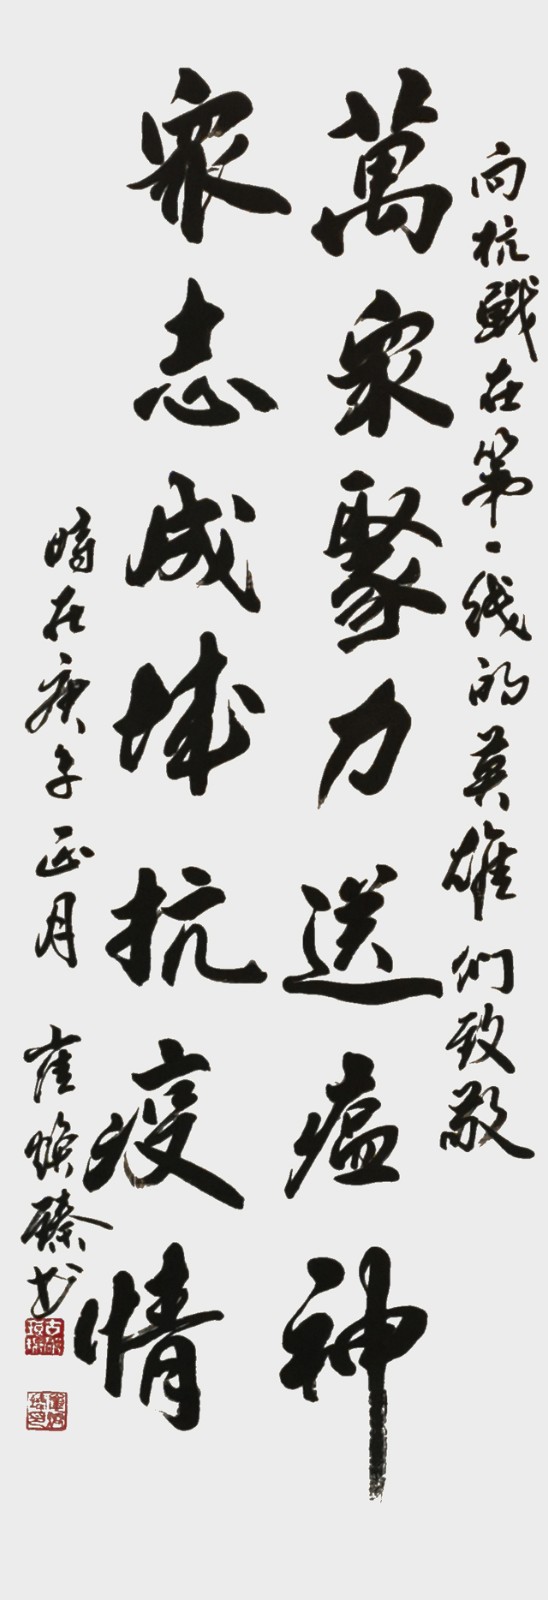 向抗戰在第一线的英雄们致敬
萬眾聚力送瘟神
眾志成城抗疫情
時在庚子正月 崔焕臻书